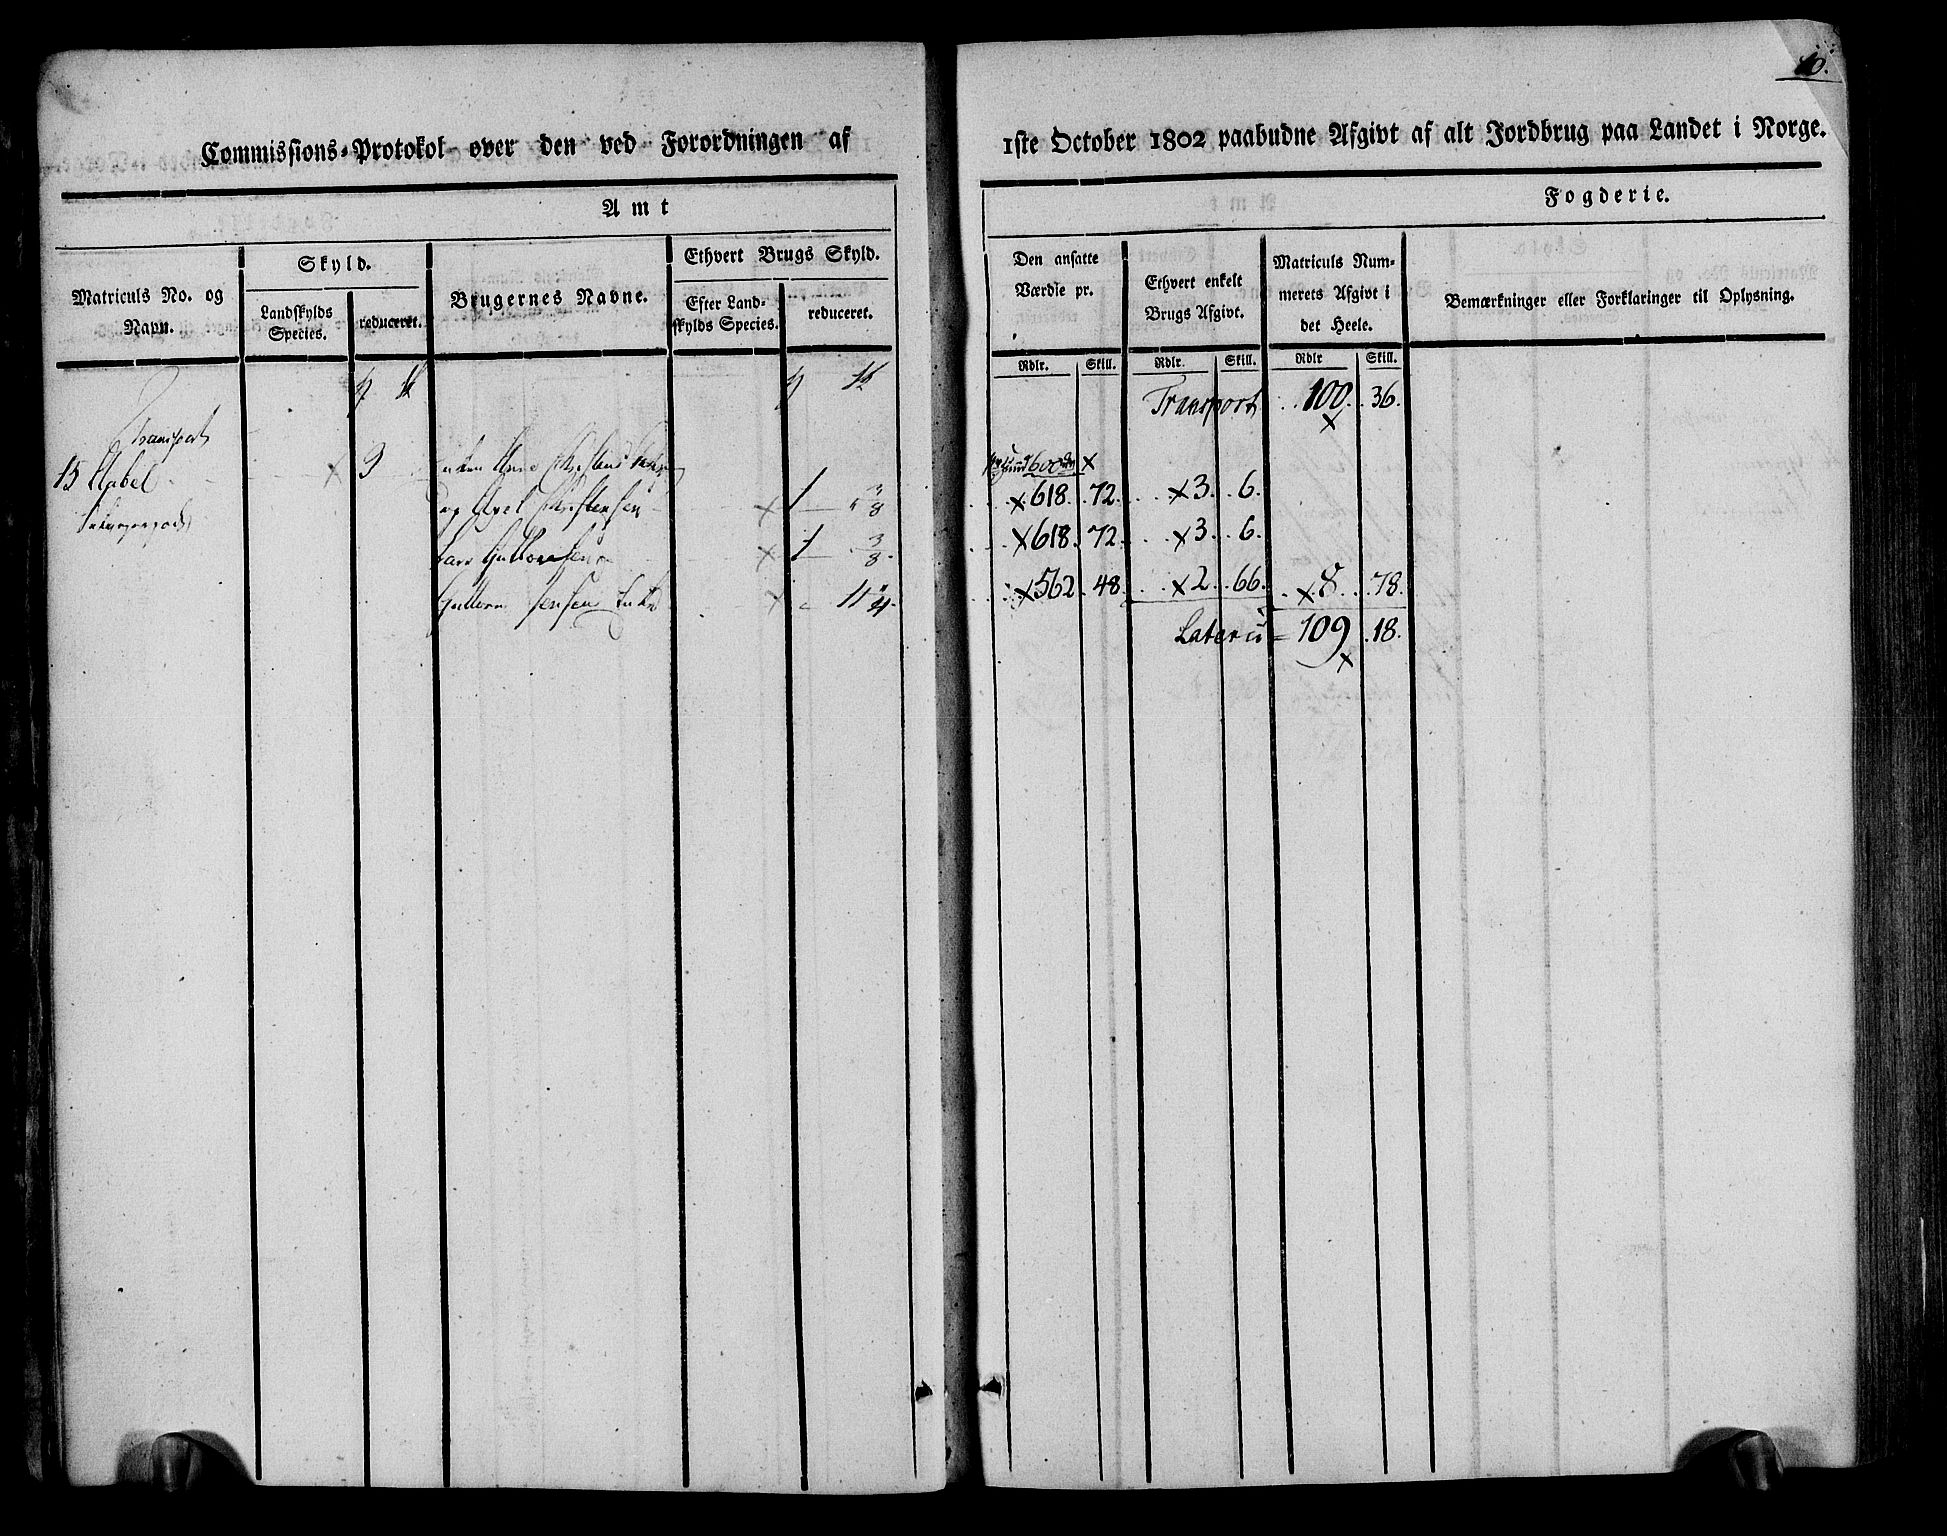 10.
Commissions-Protokol over den ved Forordningen af
1ste October 1802 paabudne Afgivt af alt Jordbrug paa Landet i Norge.
Amt
Fogderie.
Matriculs No. og
Navn.
Skyld.
Landskylds
Species.
reduceret.
Brugernes Navne.
Ethvert Brugs Skyld.
Efter Land-
skylds Species.
reduceret.
Den ansatte
Værdie pr.
Ethvert enkelt
Brugs Afgivt.
Matriculs Num-
merets Afgivt i
det Heele.
Bemærkninger eller Forklaringer til Oplysning.
Rdlr. Skill. Rdlr. Skill. Rdlr Skill.
Transport
Transport 100. 36.
15
3
Enken Anne
600
og Axel Christensen 1 3/8 618. 72. 3. 6.
Lars Guttormsen 1 3/8 618. 72. 3. 6.
Guttorm Jensens Enke 11 562. 48. 2. 66. 8. 78.
Lateris 109. 18.